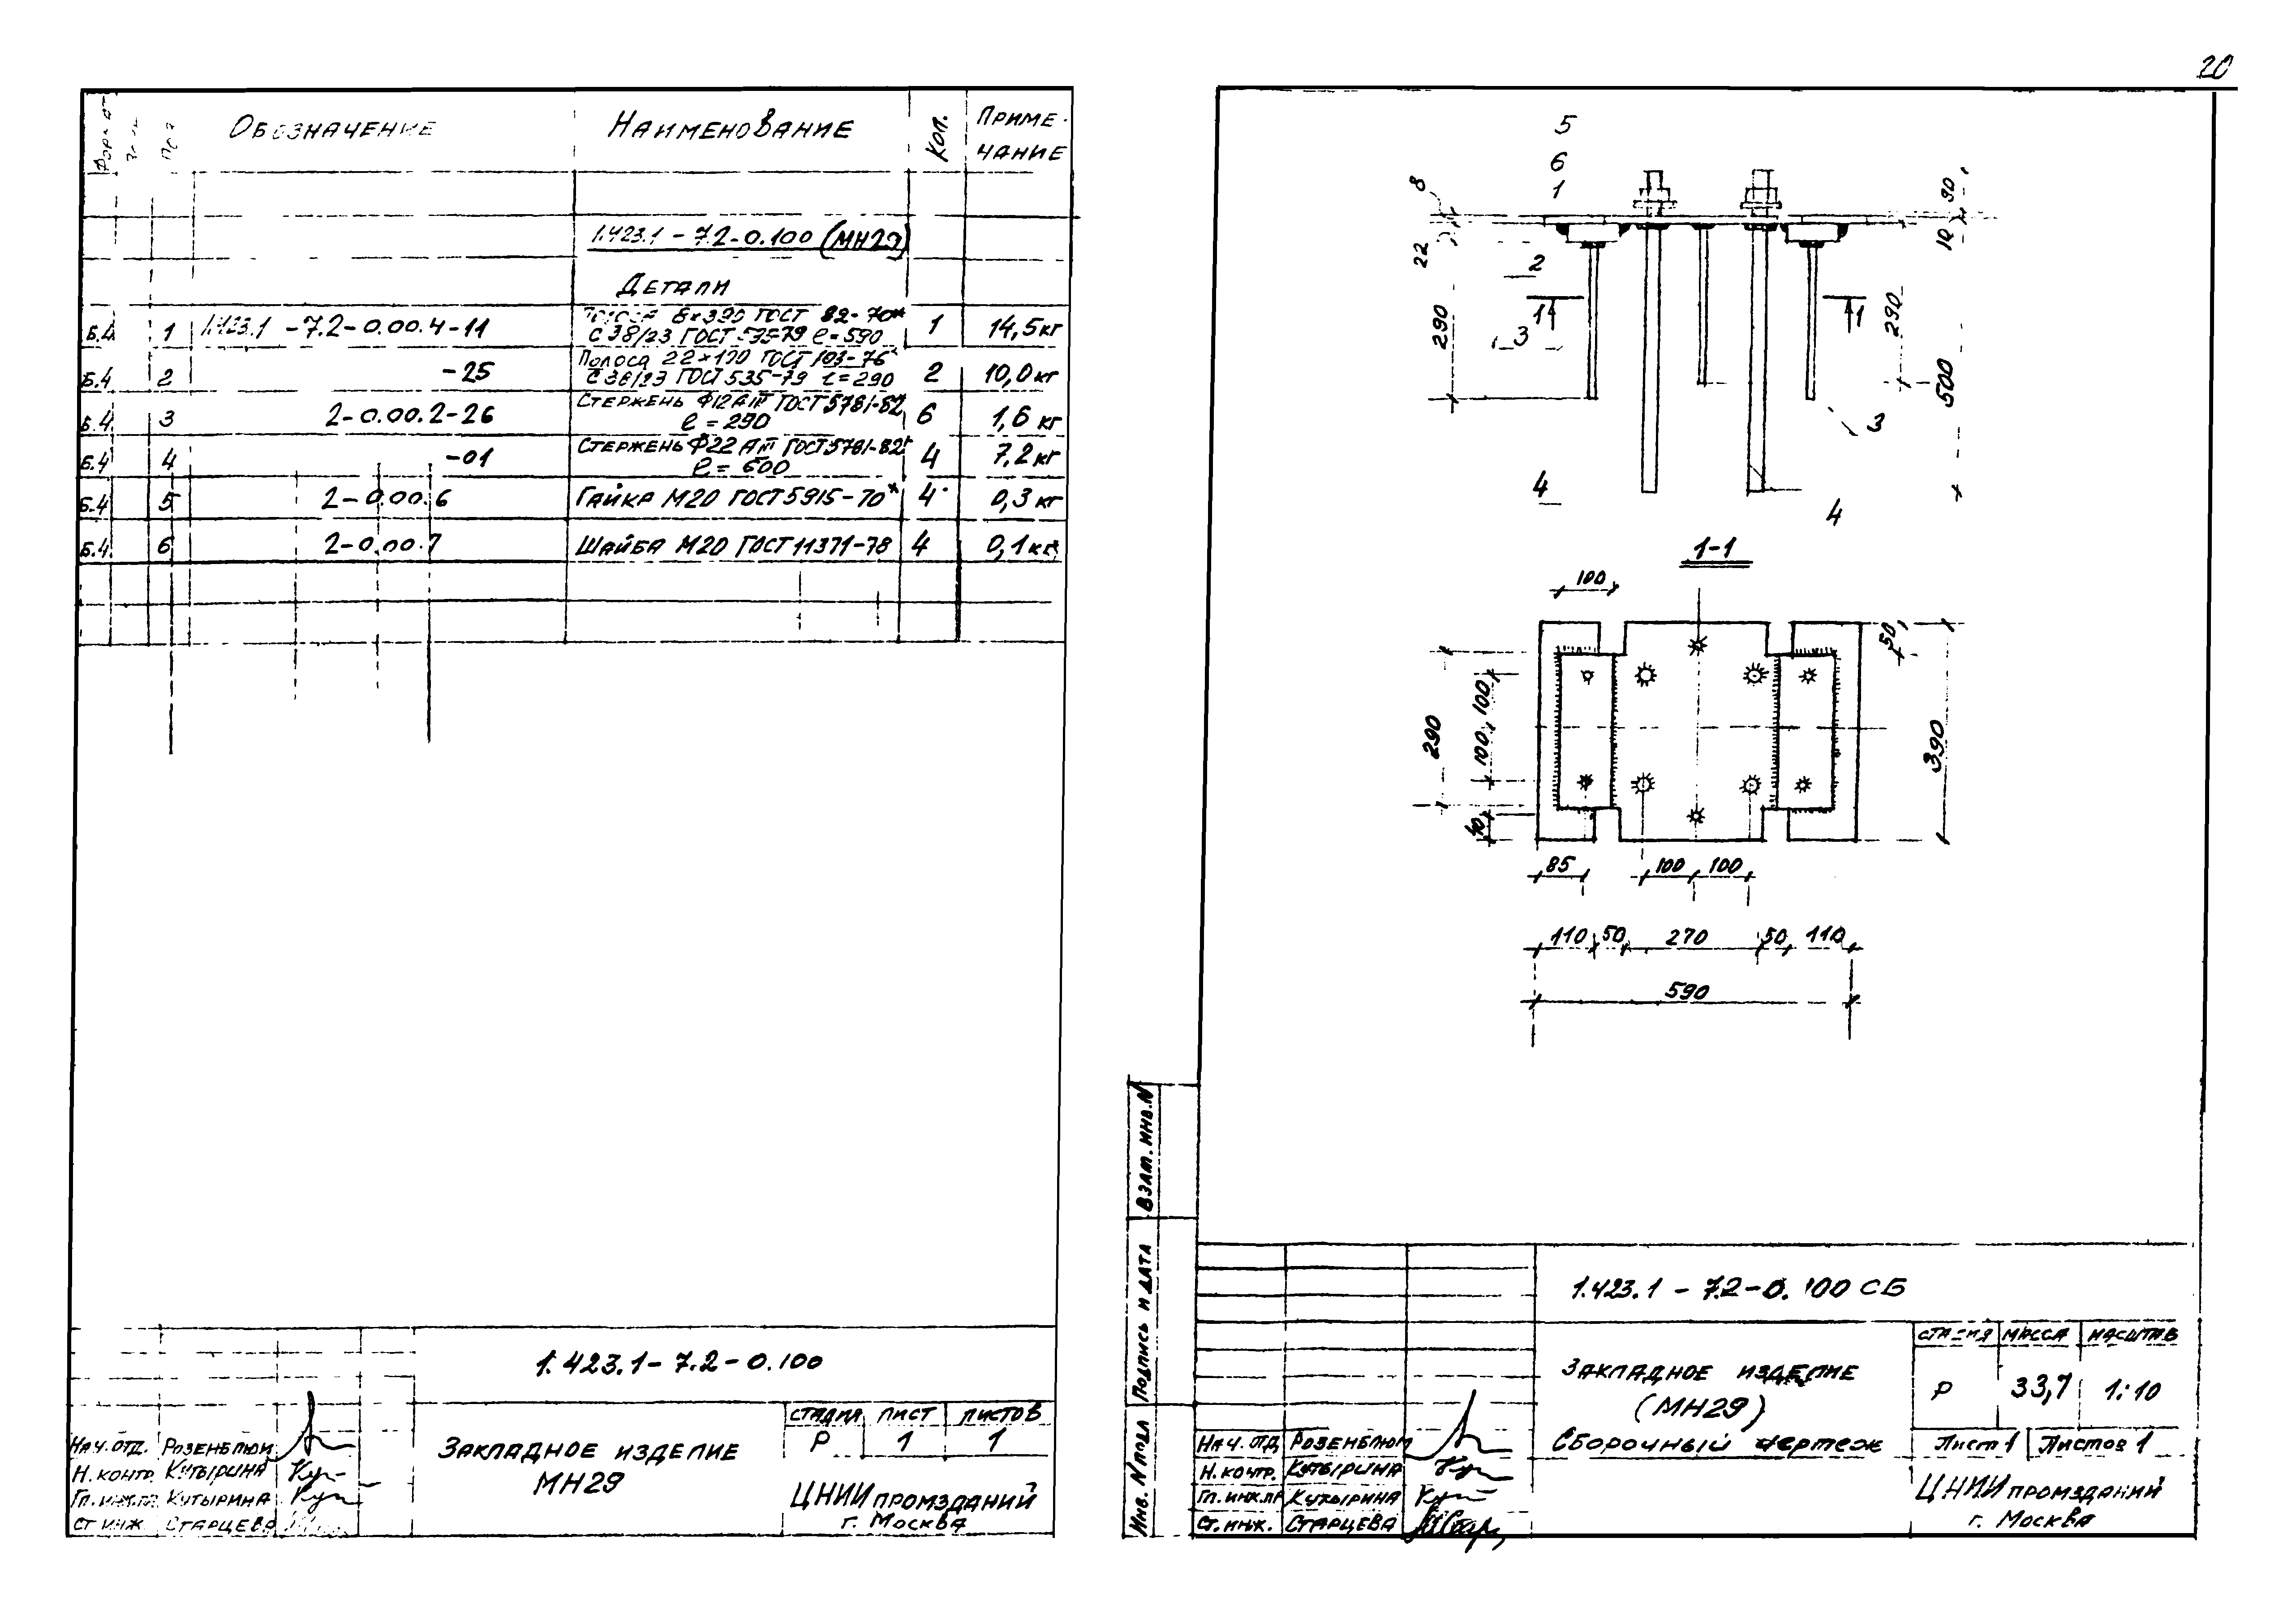 20
Обозначение Наименование Кол. Приме-
чание
1.423.1-7.2-0.100 (МН29)
Детали
Б.4 1 1.423.1-7.2-0.00.4-11 8×390 ГОСТ 82-70* 1 14,5 кг
С 38/23 ГОСТ 535-79 ℓ=590
Б.4 2 -25 Полоса 22×100 ГОСТ 103-76* 2 10,0 кг
С 38/23 ГОСТ 535-79 ℓ=290
Б.4 3 2-0.00.2-26 Стержень Ф12АIII ГОСТ 5781-82 6 1,6 кг
ℓ=290
Б.4 4 -01 Стержень Ф22 АIII ГОСТ 5781-82 4 7,2 кг
ℓ=600
Б.4 5 2-0.00.6 Гайка М20 ГОСТ 5915-70* 4 0,3 кг
Б.4 6 2-0.00.7 Шайба М20 ГОСТ 11371-78 4 0,1 кг
1.423.1-7.2-0.100
Закладное изделие
МН29
стадия лист листов
Р 1 1
ЦНИИпромзданий
г. Москва
Нач.отд. Розенблюм
Н.контр. Кутырина
Гл.инж.пр Кутырина
Ст.инж. Старцева
5
6
1
8
22
2
290
1 1
3
90
10
290
500
3
4
4
1-1
100
50
290
100
100
40
390
85 100 100
110 50 270 50 110
590
Взам. инв.N
Подпись и дата
Инв. N подл
1.423.1-7.2-0.100 СБ
Закладное изделие
(МН29)
Сборочный чертеж
стадия масса масштаб
Р 33,7 1:10
Лист 1 Листов 1
ЦНИИпромзданий
г. Москва
Нач.отд Розенблюм
Н.контр. Кутырина
Гл.инж.пр Кутырина
Ст.инж. Старцева